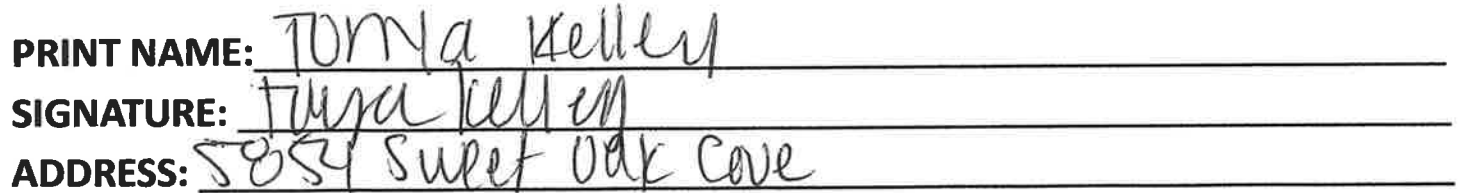 PRINT NAME: Tonya Kelley
SIGNATURE: Tonya Kelley
ADDRESS: 5854 Sweet Oak Cove